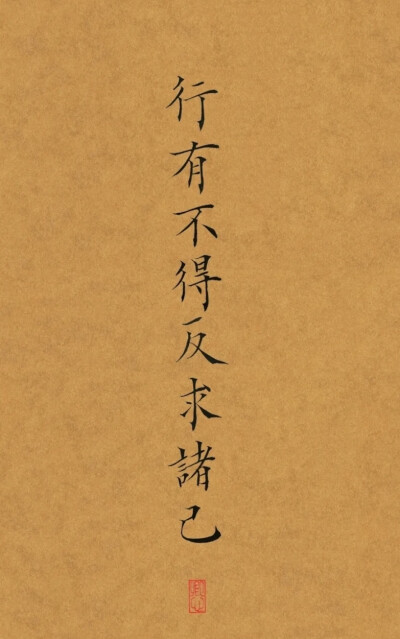 行有不得反求諸己